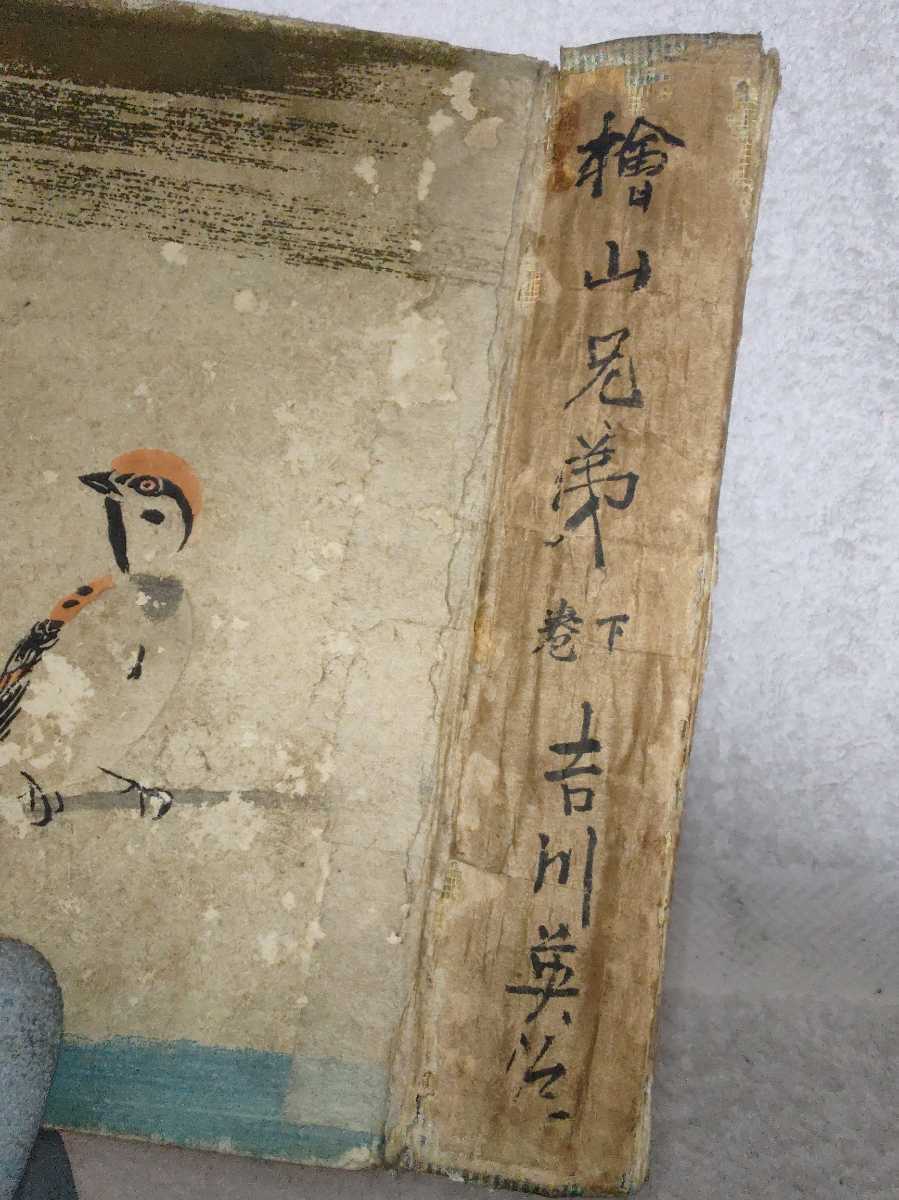 檜山兄弟 下巻 吉川英治